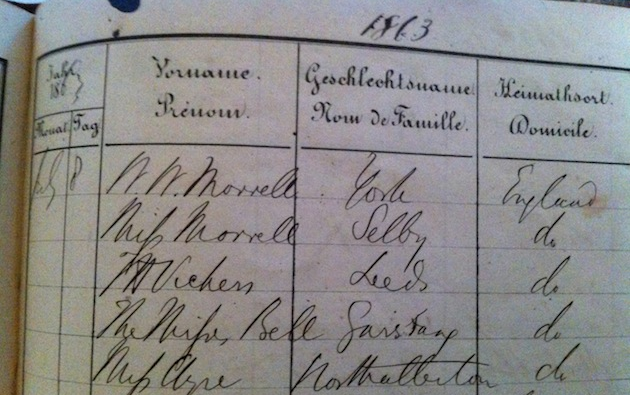 1863
Jahr 186
Vorname. Geschlechtsname Heimathsort.
Monat Tag Prénom. Nom de Famille. Domicile.
July 8 W. W. Morrell York England
Miss Morrell Selby do
Vickers Leeds do
The Misses Bell Garstang do
Miss Clyre Northallerton do